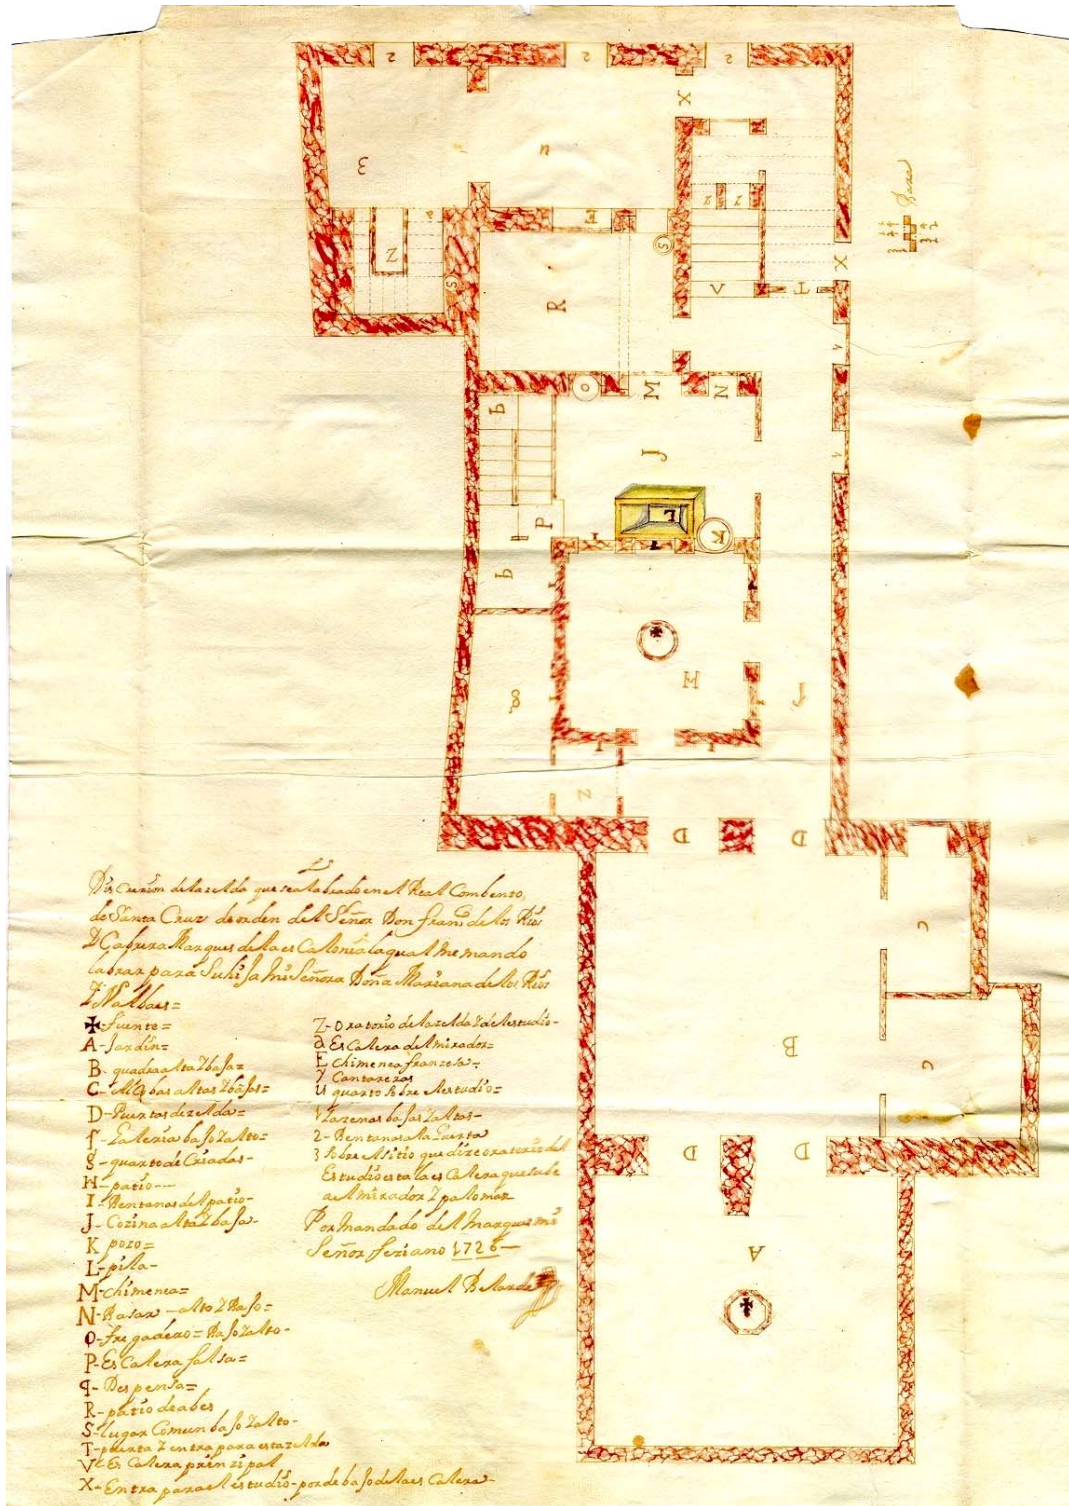 Discursion de la zelda que se a labrado en el Real Combento
de Santa Cruz de orden del Señor Don Franco de los Rios
Cabrera Marques de la es Calonia la qual me mando
labrar para Su hija mi Señora Doña Mariana de los Rios
✠ fuente=
A- Jardin=
B- quadra alta Y baja=
C- Alcobas altas Y bajas=
D- Puertas de zelda=
f- Galeria bajo Y alto=
g- quarto de Criadas-
H- patio--
I- Bentanas del patio-
J- Cozina alta Y baja-
K pozo=
L- pila-
M- chimenea=
N- Basar - alto Y Bajo=
O- fregadero= Bajo Y alto-
P- Es Calera falsa=
q- Despensa=
R- patio de abes
S- lugar Comun bajo Y alto-
T- puerta Y entra para esta zelda
V- Es Calera prinzipal
X- Entra para el estudio- por debajo de la es Calera-
Z- oratorio de la zelda Y del estudio-
a Es Calera del mirador=
E chimenea franzesa=
Y Cantareras
u quarto sobre el estudio=
1 lazenas bajas Y altas-
2- Bentanas a la Puerta
3 Sobre el sitio que dize oratorio del
Estudio esta la es Calera que sube
a el mirador Y palomar
Por mandado del Marques mi
Señor feziano 1726-
Manuel Belarde